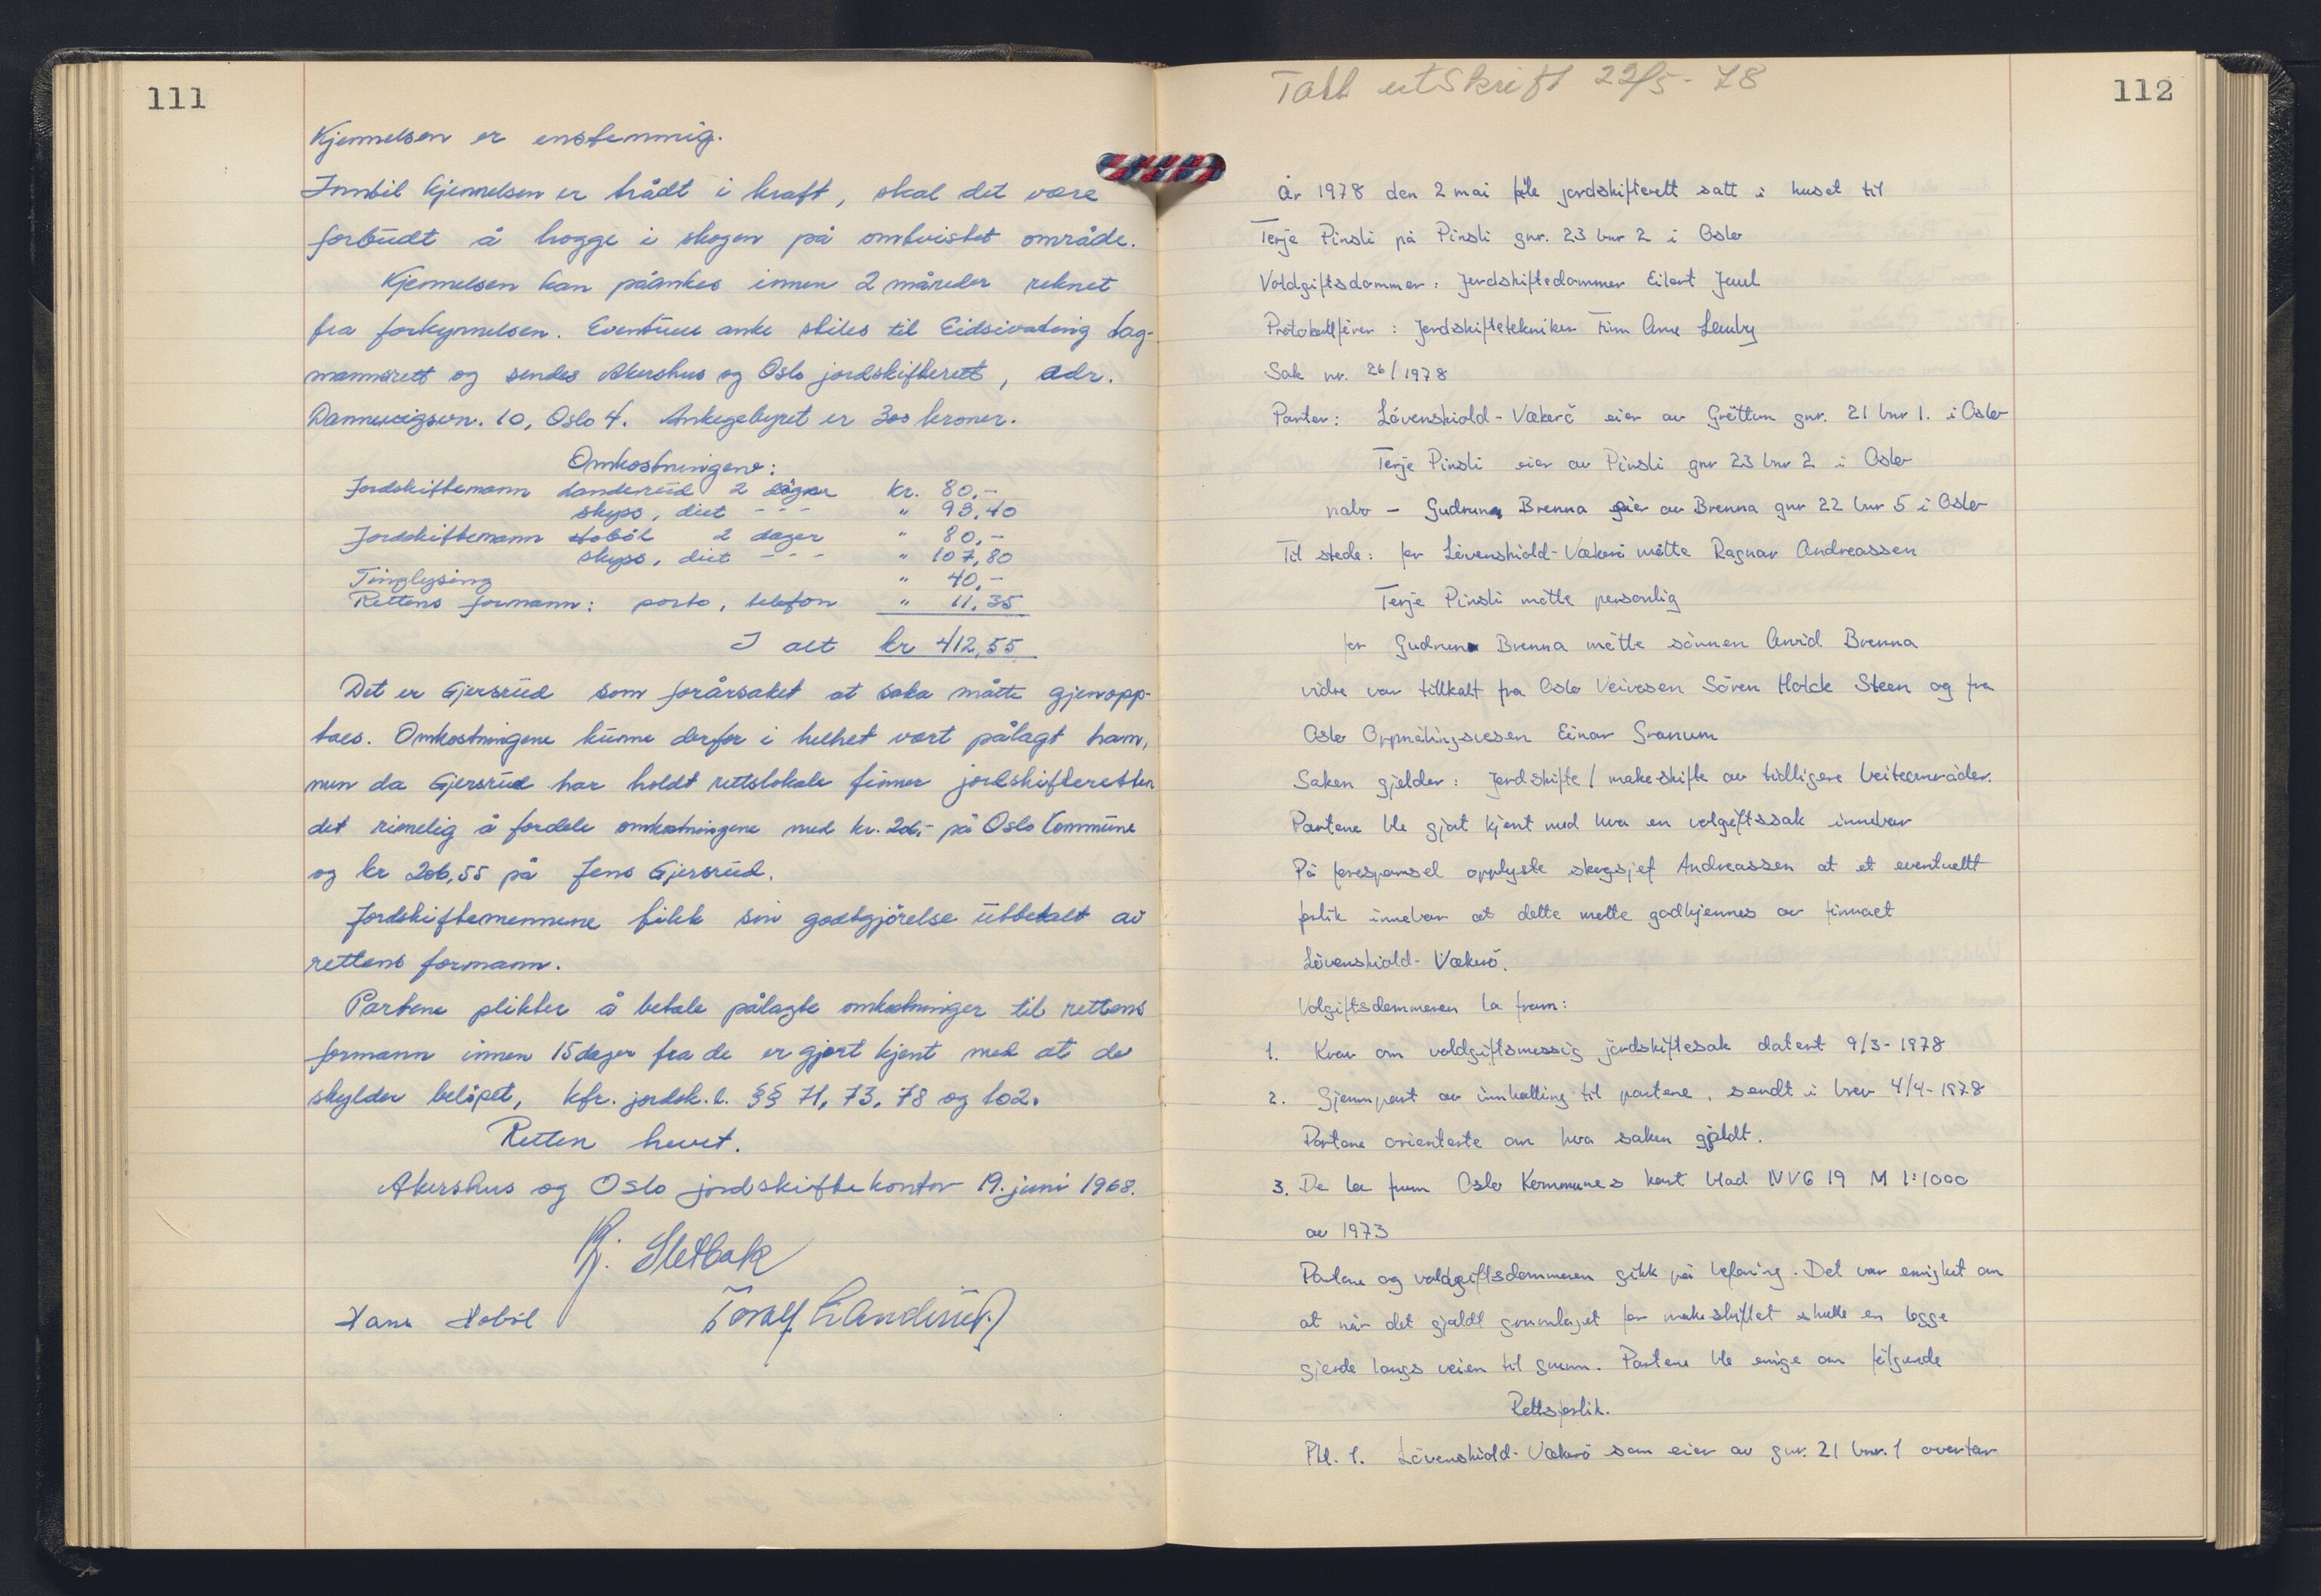 111
Kjennelsen er enstemmig.
Inntil kjennelsen er trådt i kraft, skal det være
forbudt å hogge i skogen på omtvistet område.
Kjennelsen kan påankes innen 2 måneder reknet
fra forkynnelsen. Eventuell anke stiles til Eidsivating lag-
mannsrett og sendes Akershus og Oslo jordskifterett, adr.
Dannevigsvn. 10, Oslo 4. Ankegebyret er 300 kroner.
Omkostningene:
Jordskiftemann Landerud 2 dager kr. 80,-
skyss, diet - - - " 93,40
Jordskiftemann Hobøl 2 dager " 80,-
skyss, diet - - - " 107,80
Tinglysing " 40,-
Rettens formann: porto, telefon " 11,35
I alt kr 412,55
Det er Gjersrud som forårsaket at saka måtte gjenopp-
taes. Omkostningene kunne derfor i helhet vært pålagt ham,
men da Gjersrud har holdt rettslokale finner jordskifteretten
det rimelig å fordele omkostningene med kr. 206,- på Oslo kommune
og kr 206,55 på Jens Gjersrud.
Jordskiftemennene fikk sin godtgjörelse utbetalt av
rettens formann.
Partene plikter å betale pålagte omkostninger til rettens
formann innen 15 dager fra de er gjort kjent med at de
skylder belöpet, kfr. jordsk.l. §§ 71, 73, 78 og 102.
Retten hevet.
Akershus og Oslo jordskiftekontor 19. juni 1968.
Kj. Sletbak
Hans Hobøl Toralf Landerud
Tatt utskrift 22/5-78
112
År 1978 den 2 mai ble jordskifterett satt i huset til
Terje Pinsli på Pinsli gnr. 23 bnr 2 i Oslo
Voldgiftsdommer: Jordskiftedommer Eilert Juul
Protokollfører: Jordskiftetekniker Finn Arne Lemby
Sak nr. 26/1978
Parter: Lövenskiold-Vækerö eier av Gröttum gnr. 21 bnr 1. i Oslo
Terje Pinsli eier av Pinsli gnr 23 bnr 2 i Oslo
nabo - Gudrun Brenna eier av Brenna gnr 22 bnr 5 i Oslo
Til stede: for Lövenskiold-Vækerö møtte Ragnar Andreassen
Terje Pinsli møtte personlig
for Gudrun Brenna møtte sönnen Arvid Brenna
vidre var tillkalt fra Oslo Veivesen Sören Holck Steen og fra
Oslo Oppmålingsvesen Einar Granum
Saken gjelder: Jordskifte / makeskifte av tidligere beiteområder.
Partene ble gjort kjent med hva en volgiftssak innebar
På forespørsel opplyste skogsjef Andreassen at et eventuellt
forlik innebar at dette måtte godkjennes av firmaet
Lövenskiold-Vækerö.
Volgiftsdommeren la fram:
1. Krav om voldgiftsmessig jordskiftesak datert 9/3-1978
2. Gjennpart av innkalling til partene, sendt i brev 4/4-1978
Partene orienterte om hva saken gjaldt.
3. De la fram Oslo Kommunes kart blad NVG 19 M 1:1000
av 1973
Partene og voldgiftsdommeren gikk på befaring. Det var enighet om
at når det gjaldt grunnlaget for makeskiftet skulle en legge
gjerde langs veien til grunn. Partene ble enige om følgende
Rettsforlik.
Pkt. 1. Lövenskiold-Vækerö som eier av gnr. 21 bnr. 1 overtar